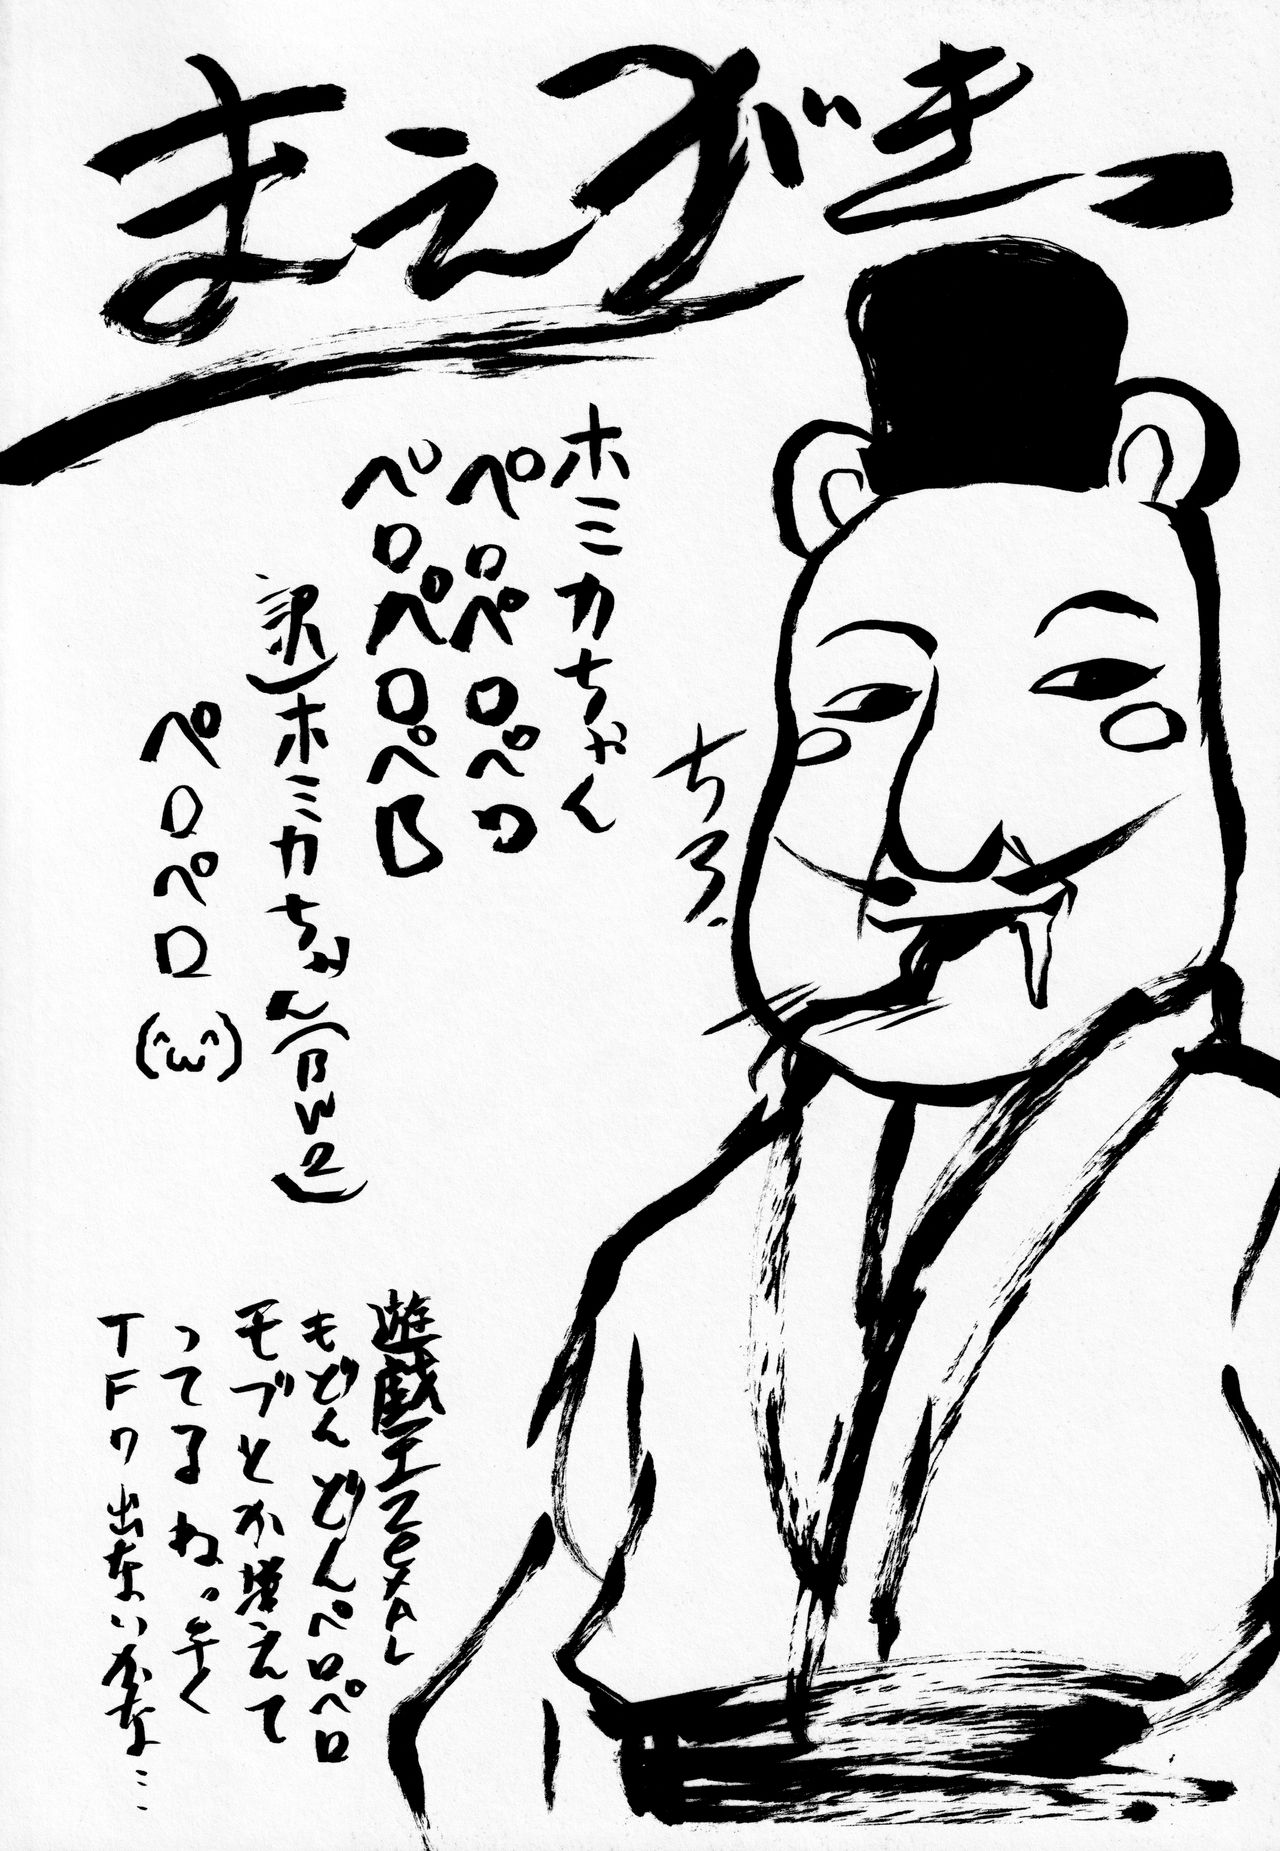 まえがき、
ちろ、
ホミカちゃん
ペロペロペロ
ペロペロペロ
訳)ホミカちゃん(BW2)
ペロペロ(^ω^)
遊戯王ZeXAL
もどんどんペロペロ
モブとか増えて
ってるね。早く
TF7出ないかな…